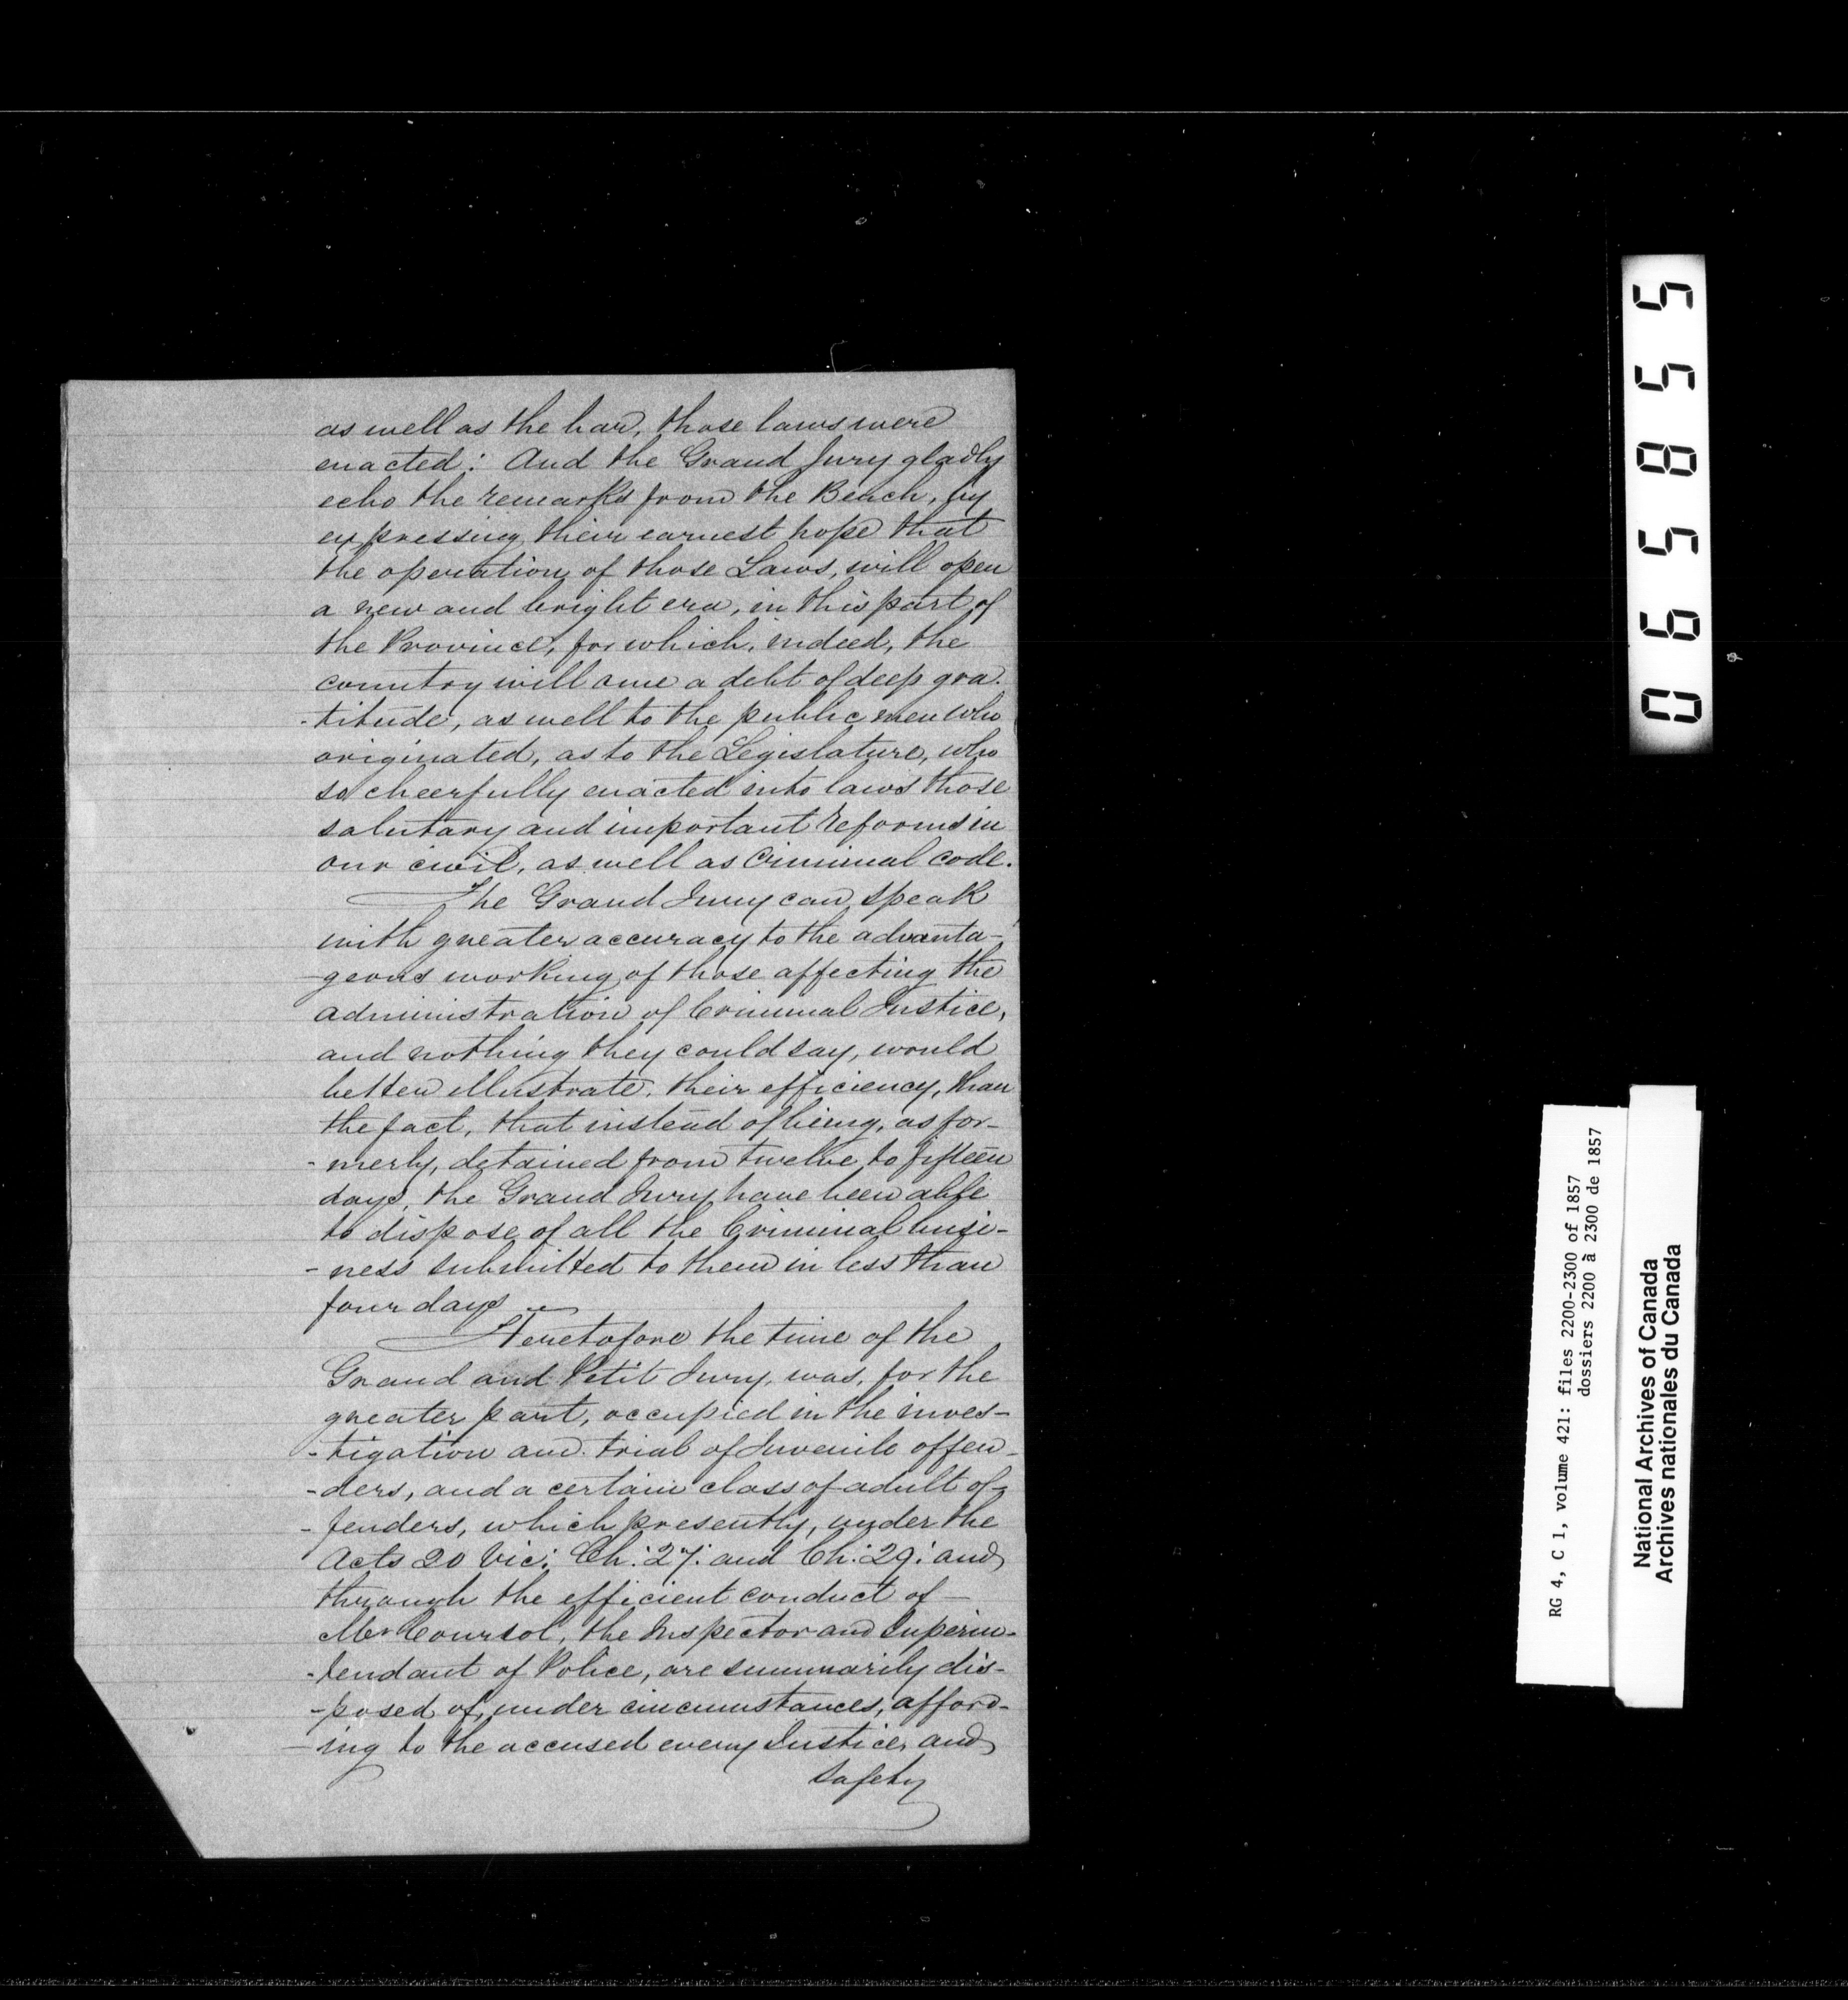 as well as the bar, those laws were
enacted: And the Grand Jury gladly
echo the remarks from the Bench, by
expressing their earnest hope that
the operation of those Laws, will open
a new and bright era, in this part of
the Province, for which, indeed, the
country will owe a debt of deep gra-
-titude, as well to the public men who
originated, as to the Legislature, who
so cheerfully enacted into laws those
salutary and important reforms in
our civil, as well as Criminal code.
The Grand Jury can speak
with greater accuracy to the advanta-
-geous working of those affecting the
administration of Criminal Justice,
and nothing they could say, would
better illustrate, their efficiency, than
the fact, that instead of being, as for-
-merly, detained from twelve to fifteen
days, the Grand Jury have been able
to dispose of all the Criminal busi-
-ness submitted to them in less than
four days —
Heretofore the time of the
Grand and Petit Jury, was, for the
greater part, occupied in the inves-
-tigation and trial of Juvenile offen-
-ders, and a certain class of adult of-
-fenders, which presently, under the
Acts 20 Vic: Ch: 27: and Ch: 29: and
through the efficient conduct of —
Mr Coursol, the Inspector and Superin-
-tendant of Police, are summarily dis-
-posed of, under circumstances, afford-
-ing to the accused every Justice, and
safety
065855
RG 4, C 1, volume 421: files 2200-2300 of 1857
dossiers 2200 à 2300 de 1857
National Archives of Canada
Archives nationales du Canada